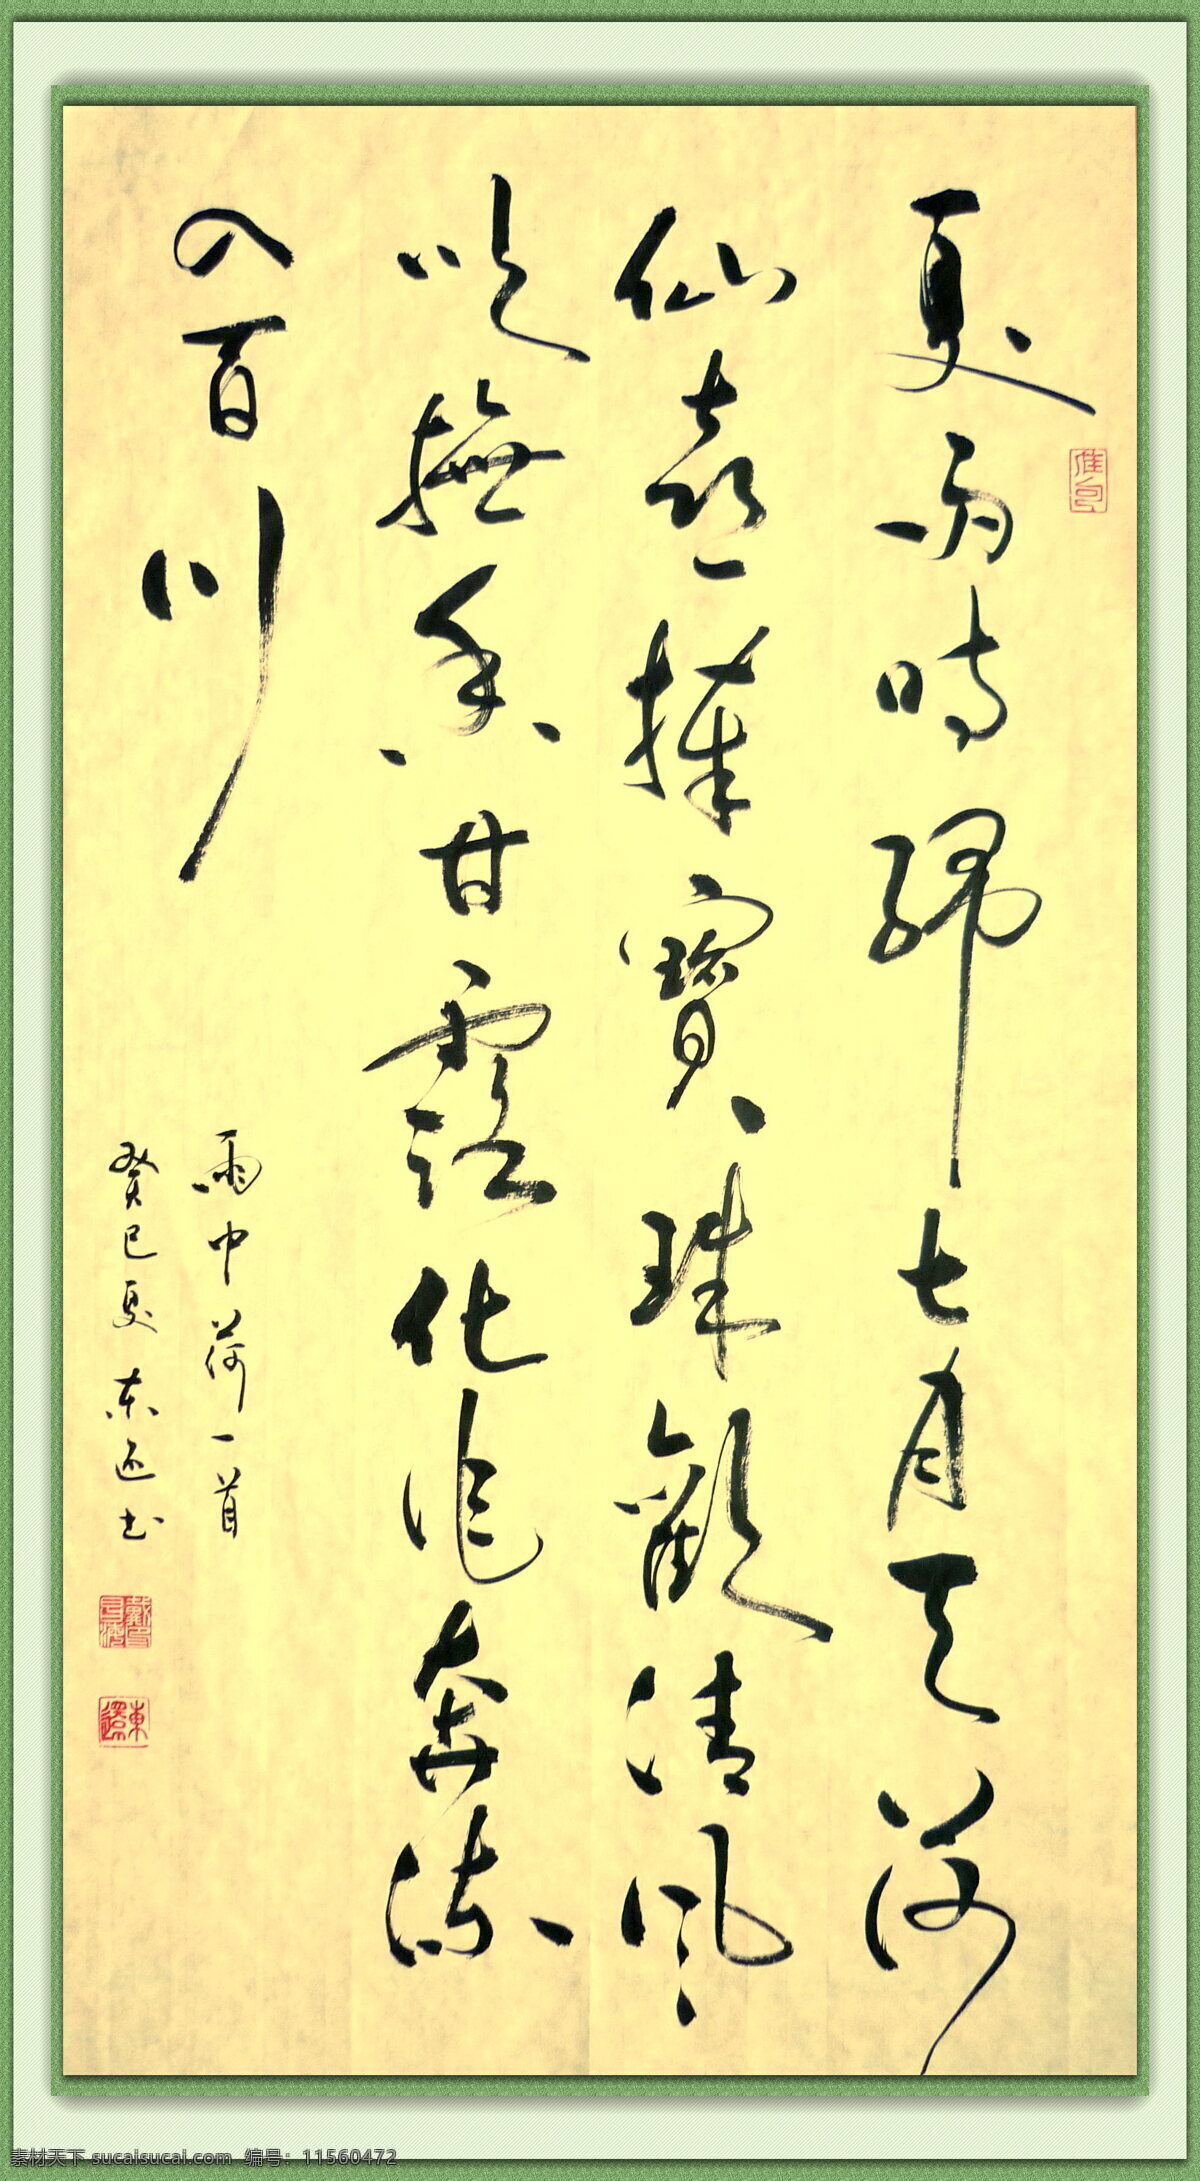 夏雨時歸七月天荷
仙喜寶珠歡清風
吹撫香甘露化作奔流
入百川
雨中荷一首
癸巳夏东还书
東還
素材天下 sucaisucai.com 编号：11560472